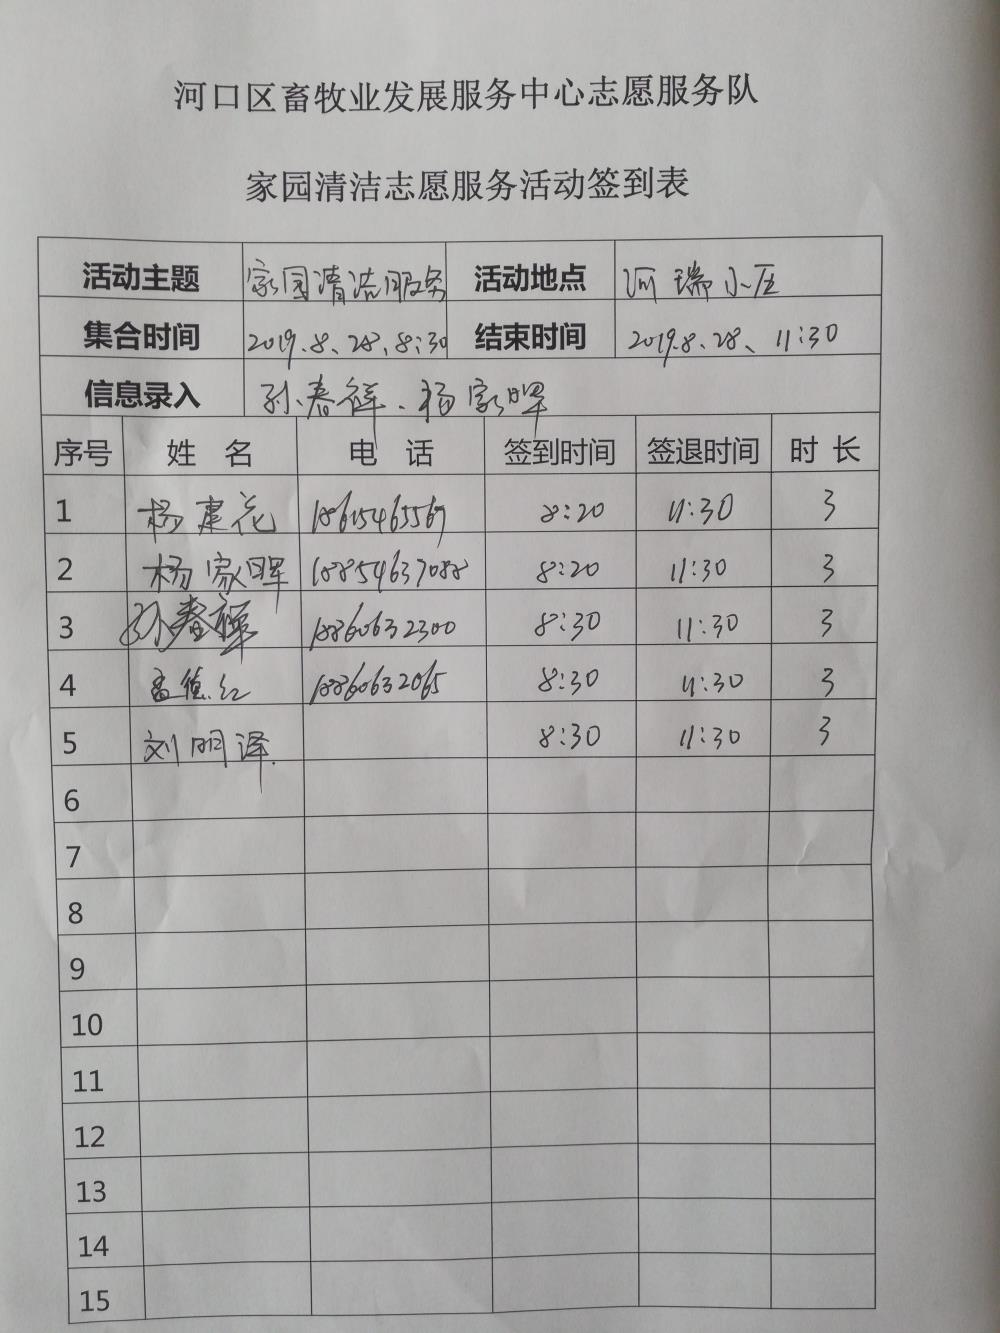 河口区畜牧业发展服务中心志愿服务队
家园清洁志愿服务活动签到表
活动主题 家园清洁服务 活动地点 河瑞小区
集合时间 2019.8、28、8:30 结束时间 2019.8、28、11:30
信息录入 孙春祥、杨家晖
序号 姓 名 电 话 签到时间 签退时间 时 长
1 杨建花 18615465567 8:20 11:30 3
2 杨家晖 18854637088 8:20 11:30 3
3 孙春祥 18360632300 8:30 11:30 3
4 德红 18360632065 8:30 11:30 3
5 刘明泽. 8:30 11:30 3
6
7
8
9
10
11
12
13
14
15